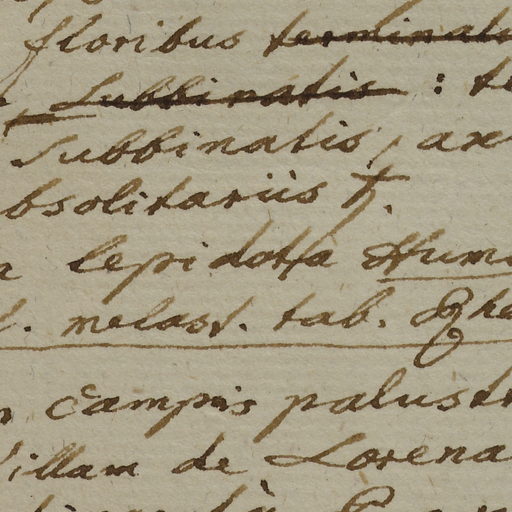 floribus terminalib
Subbinatis : te
Subbinatis, ax
bsolitariis ƒ.
lepidota Hum
melast. tab.
campis palust
Villam de Lorena